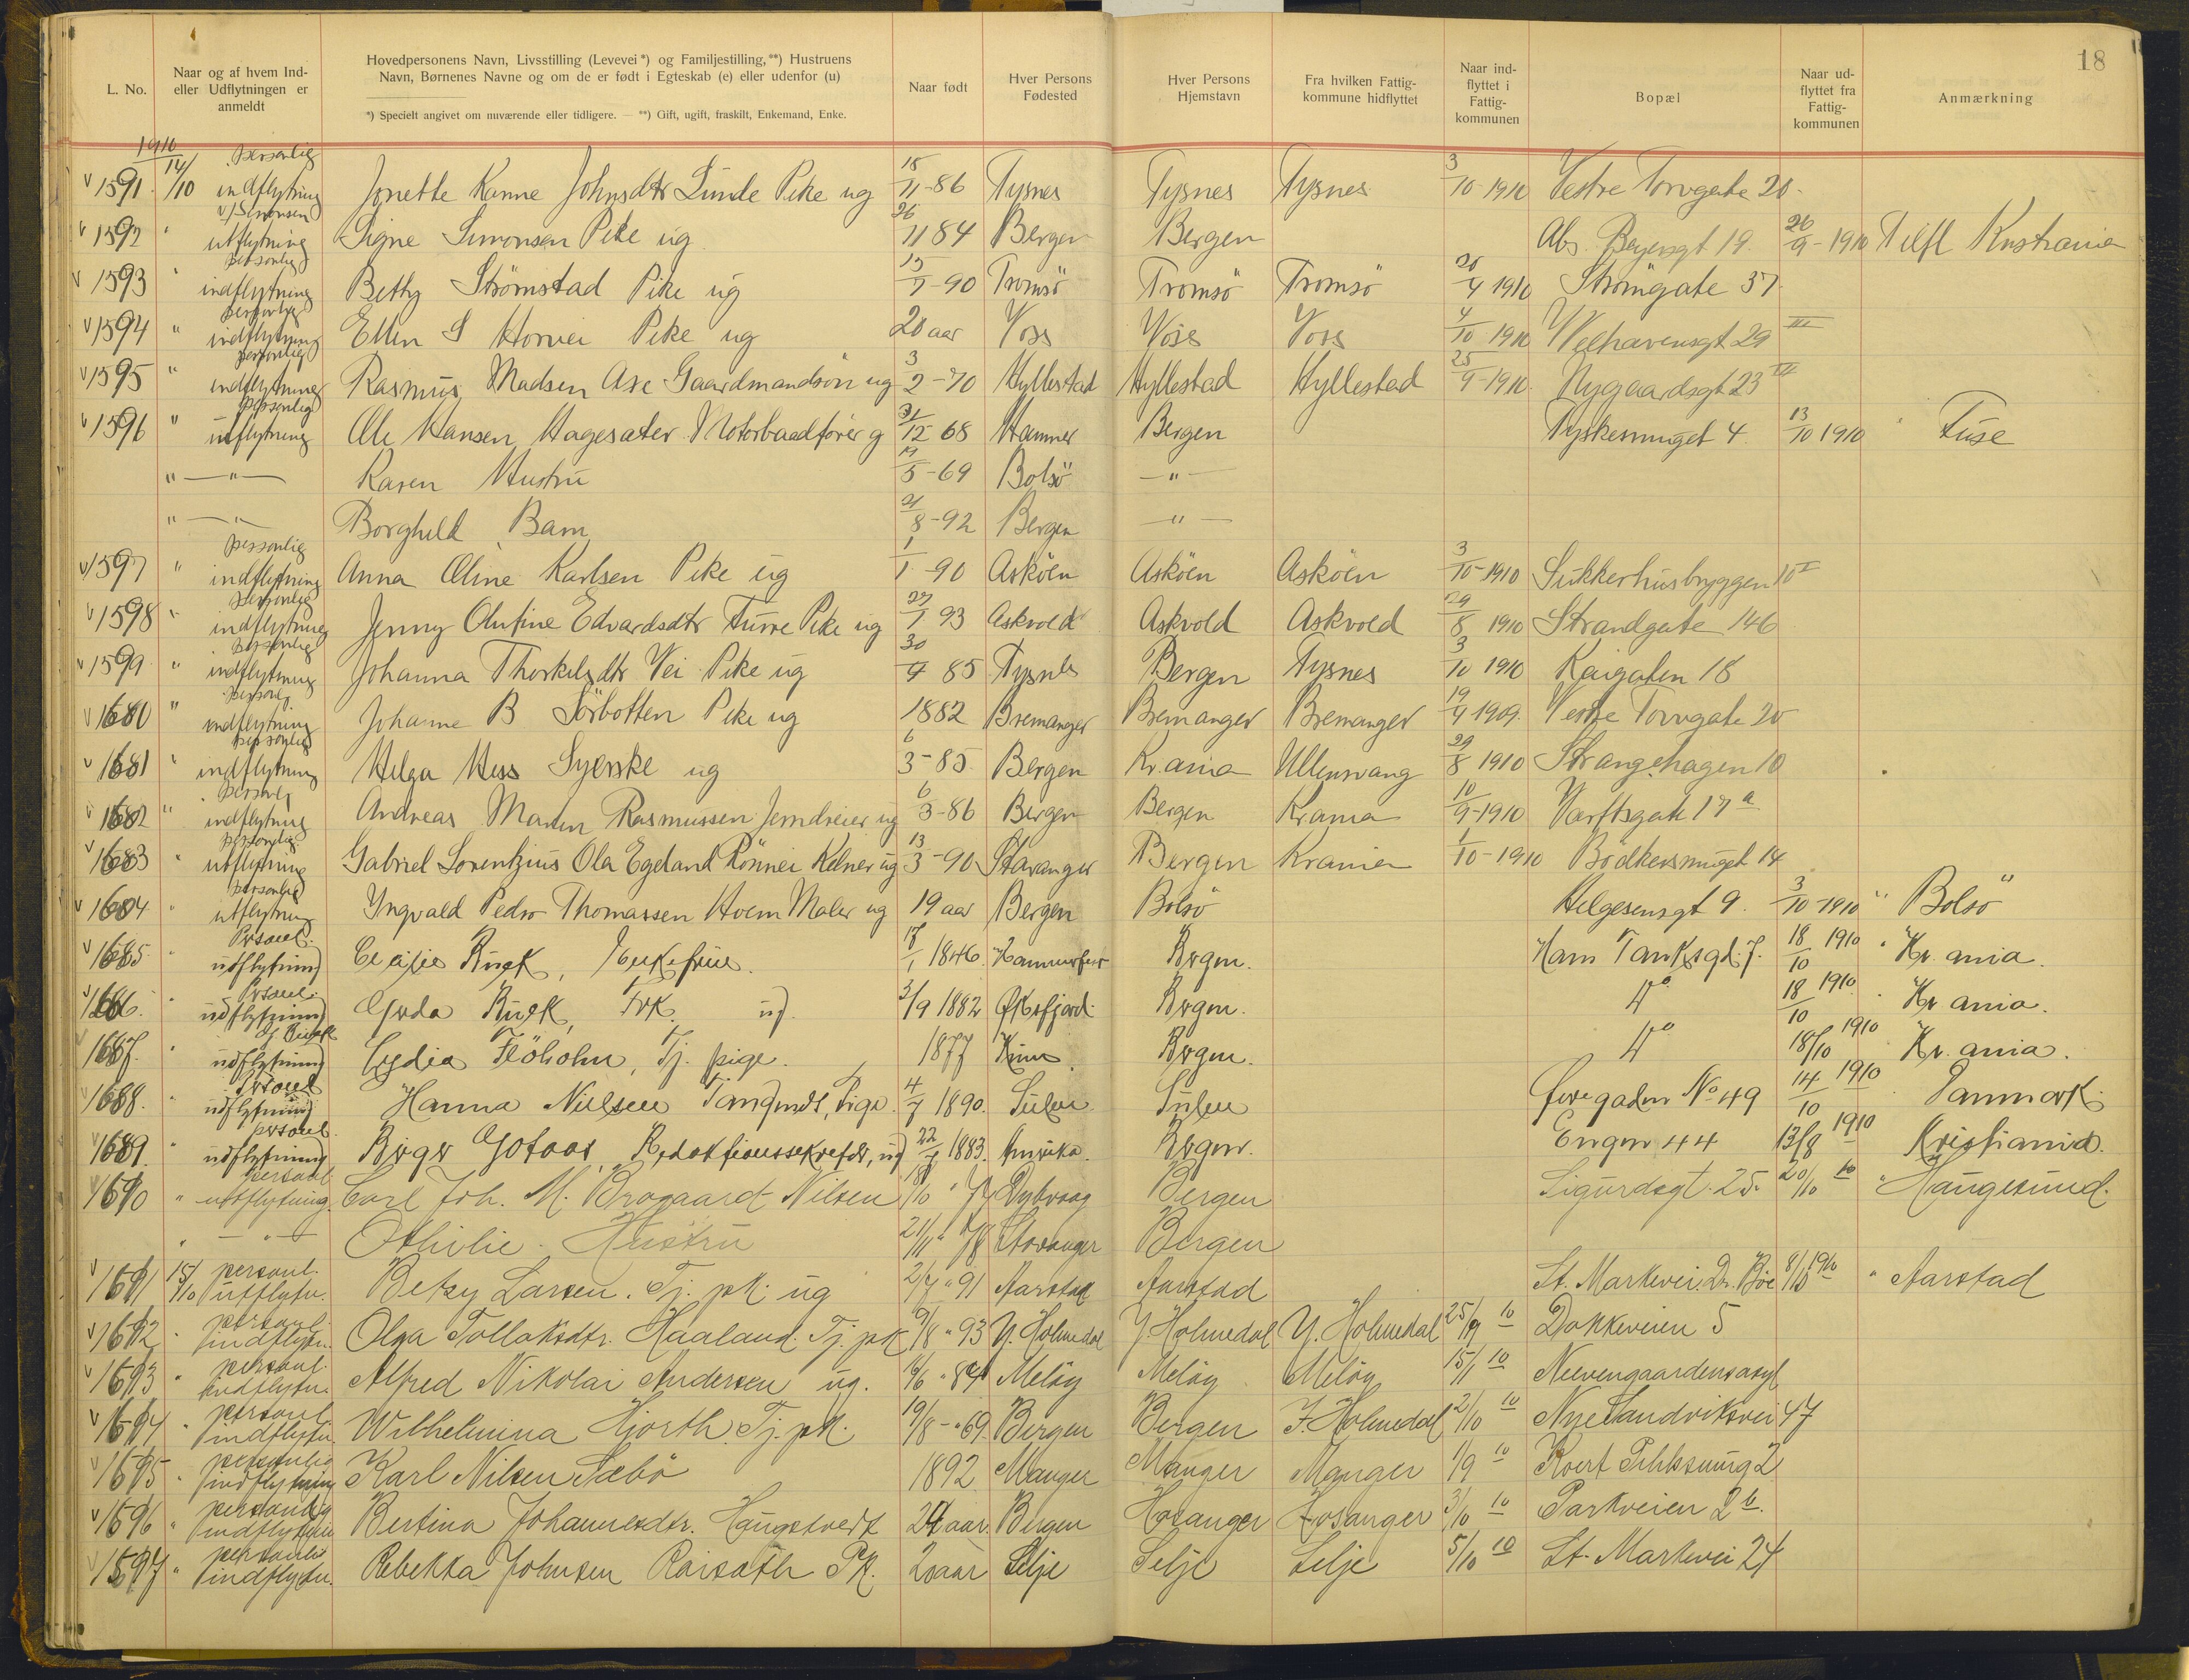 18
L. No.
Naar og af hvem Ind- eller Udflytningen er anmeldt
Hovedpersonens Navn, Livsstilling (Levevei*) og Familjestilling,**) Hustruens Navn, Børnenes Navne og om de er født i Egteskab (e) eller udenfor (u)
*) Specielt angivet om nuværende eller tidligere. — **) Gift, ugift, fraskilt, Enkemand, Enke.
Naar født
Hver Persons Fødested
Hver Persons Hjemstavn
Fra hvilken Fattig- kommune hidflyttet
Naar ind- flyttet i Fattig- kommunen
Bopæl
Naar ud- flyttet fra Fattig- kommunen
Anmærkning
1910
v 1591. 14/10 personlig indflytning Jonette Kanne Johnsdtr Lunde Pike ug 18/11-86 Tysnes Tysnes Tysnes 3/10-1910 Vestre Torvgate 20.
v 1592 " v/Simonsen utflytning Signe Simonsen Pike ug 26/11 84 Bergen Bergen Abs. Beyersgt 19. 26/9-1910 Tilfl Kristiania
v 1593 " personlig indflytning Betty Strömstad Pike ug 13/7-90 Tromsö Tromsö Tromsö 20/4 1910 Strömgate 37
v 1594 " personlig indflytning Ellen S Horvei Pike ug 20 aar Voss Voss Voss 4/10 1910 Welhavensgt 29 III
v 1595 " personlig indflytning Rasmus Madsen Ase Gaardmandsön ug 3/2-70 Hyllestad Hyllestad Hyllestad 25/9-1910 Nygaardsgt 23 III
v 1596 " personlig utflytning Ole Hansen Hagesæter Motorbaadförer g 31/12 68 Hammer Bergen Tyskesmuget 4. 13/10 1910 " Fuse
" — " — Karen Hustru 19/5-69 Bolsö — " —
" — " Borghild Barn 21/8-92 Bergen — " —
v 1597 " personlig indflytning Anna Oline Karlsen Pike ug 1/1-90 Asköen Asköen Asköen 3/10-1910 Sukkerhusbryggen 10 I
v 1598 " personlig indflytning Jenny Olufine Edvardsdtr Furre Pike ug 27/1 93 Askvold Askvold Askvold 29/8 1910 Strandgate 146
v 1599 " personlig indflytning Johanna Thorkelsdtr Vei Pike ug 30/4 85 Tysnes Bergen Tysnes 3/10 1910 Kaigaten 18
v 1680 " personlig indflytning Johanne B Sörbotten Pike ug 1882 Bremanger Bremanger Bremanger 19/4 1909. Vestre Torvgate 20
v 1681 " personlig indflytning Helga Hess Syerske ug 6/3-85 Bergen Kr.ania Ullensvang 29/8 1910 Strangehagen 10
v 1682 " personlig indflytning Andreas Martin Rasmussen Jerndreier ug 6/3-86 Bergen Bergen Krania 10/9-1910 Værftsgate 17 a
v 1683 " personlig utflytning Gabriel Lorentzius Ola Egeland Rönnei Kelner ug 13/3-90 Stavanger Bergen Krania 1/10-1910 Bödkersmuget 14
v 1684 " personlig utflytning Ingvald Pedro Thomassen Hoem Maler ug 19 aar Bergen Bolsö Helgesensgt 9. 3/10-1910 " Bolsö
v 1685. " Personl. udflytning Cecilie Ruck, Enkefrue. 17/1 1846. Hammerfest Bergen. Hans Tanksgd. 7. 18/10 1910 " Kr.ania.
v 1686. " Personl. udflytning Gyda Ruck, Frk. ug. 3/9 1882 Øksfjord. Bergen. Do 18/10 1910. " Kr ania.
1687. " udflytning Lydia Flöholm, Tj. pige. 1877 Kinn Bergen. Do 18/10 1910 Kr. ania.
v 1688. " Personl udflytning Hanna Nielsen Pige. 4/7 1890. Sulen Sulen Øvregaden No 49 14/10 1910 Danmark.
v 1689. " personl. udflytning Birger Gotaas, Redaktionssekretær, ug 22/7 1883. Amerika. Bergen. Engen 44 13/8 1910 Kristiania.
1690 " personl utflytning. Carl Joh. M. Brogaard Nilsen 18/10 " 77 Dybvaag Bergen Sigurdsgt. 25. 20/10 10 " Haugesund.
" — " — Othilie. Hustru 21/11 " 78 Stavanger Bergen
v 1691 15/10 personl. utflytn. Betzy Larsen. Tj. pk. ug 2/7 " 91 Aarstad Aarstad St. Markevei. Dr. Böe 8/10 1910 " Aarstad
v 1692 " personl. indflytn. Olga Tollaksdtr. Haaland. Tj. pk 9/8 " 93 Y. Holmedal Y. Holmedal Y. Holmedal 25/9 10 Dokkeveien 5
v 1693 " personl. indflytn. Alfred Nikolai Andersen ug. 16/6 " 84 Melöy Melöy Melöy 15/1 10 Neevengaardensasyl
v 1694 " personl. indflytn. Wilhelmina Hjorth Tj. pk. 19/8-" 69. Bergen Bergen I. Holmedal 2/10 10 Nye Sandviksvei 47
v 1695 " personlig indflytning Karl Nilsen Sæbö 1892 Manger Manger Manger 1/9 10 2
v 1696 " personlig indflytning Bertina Johannesdtr. Haugstvedt 24 aar. Bergen Hosanger Hosanger 3/10 10 Parkveien 2 b.
v 1597 " personlig indflytn. Rebekka Johnsen Pk. 20 aar Selje Selje Selje 5/10 10 St. Markevei 24